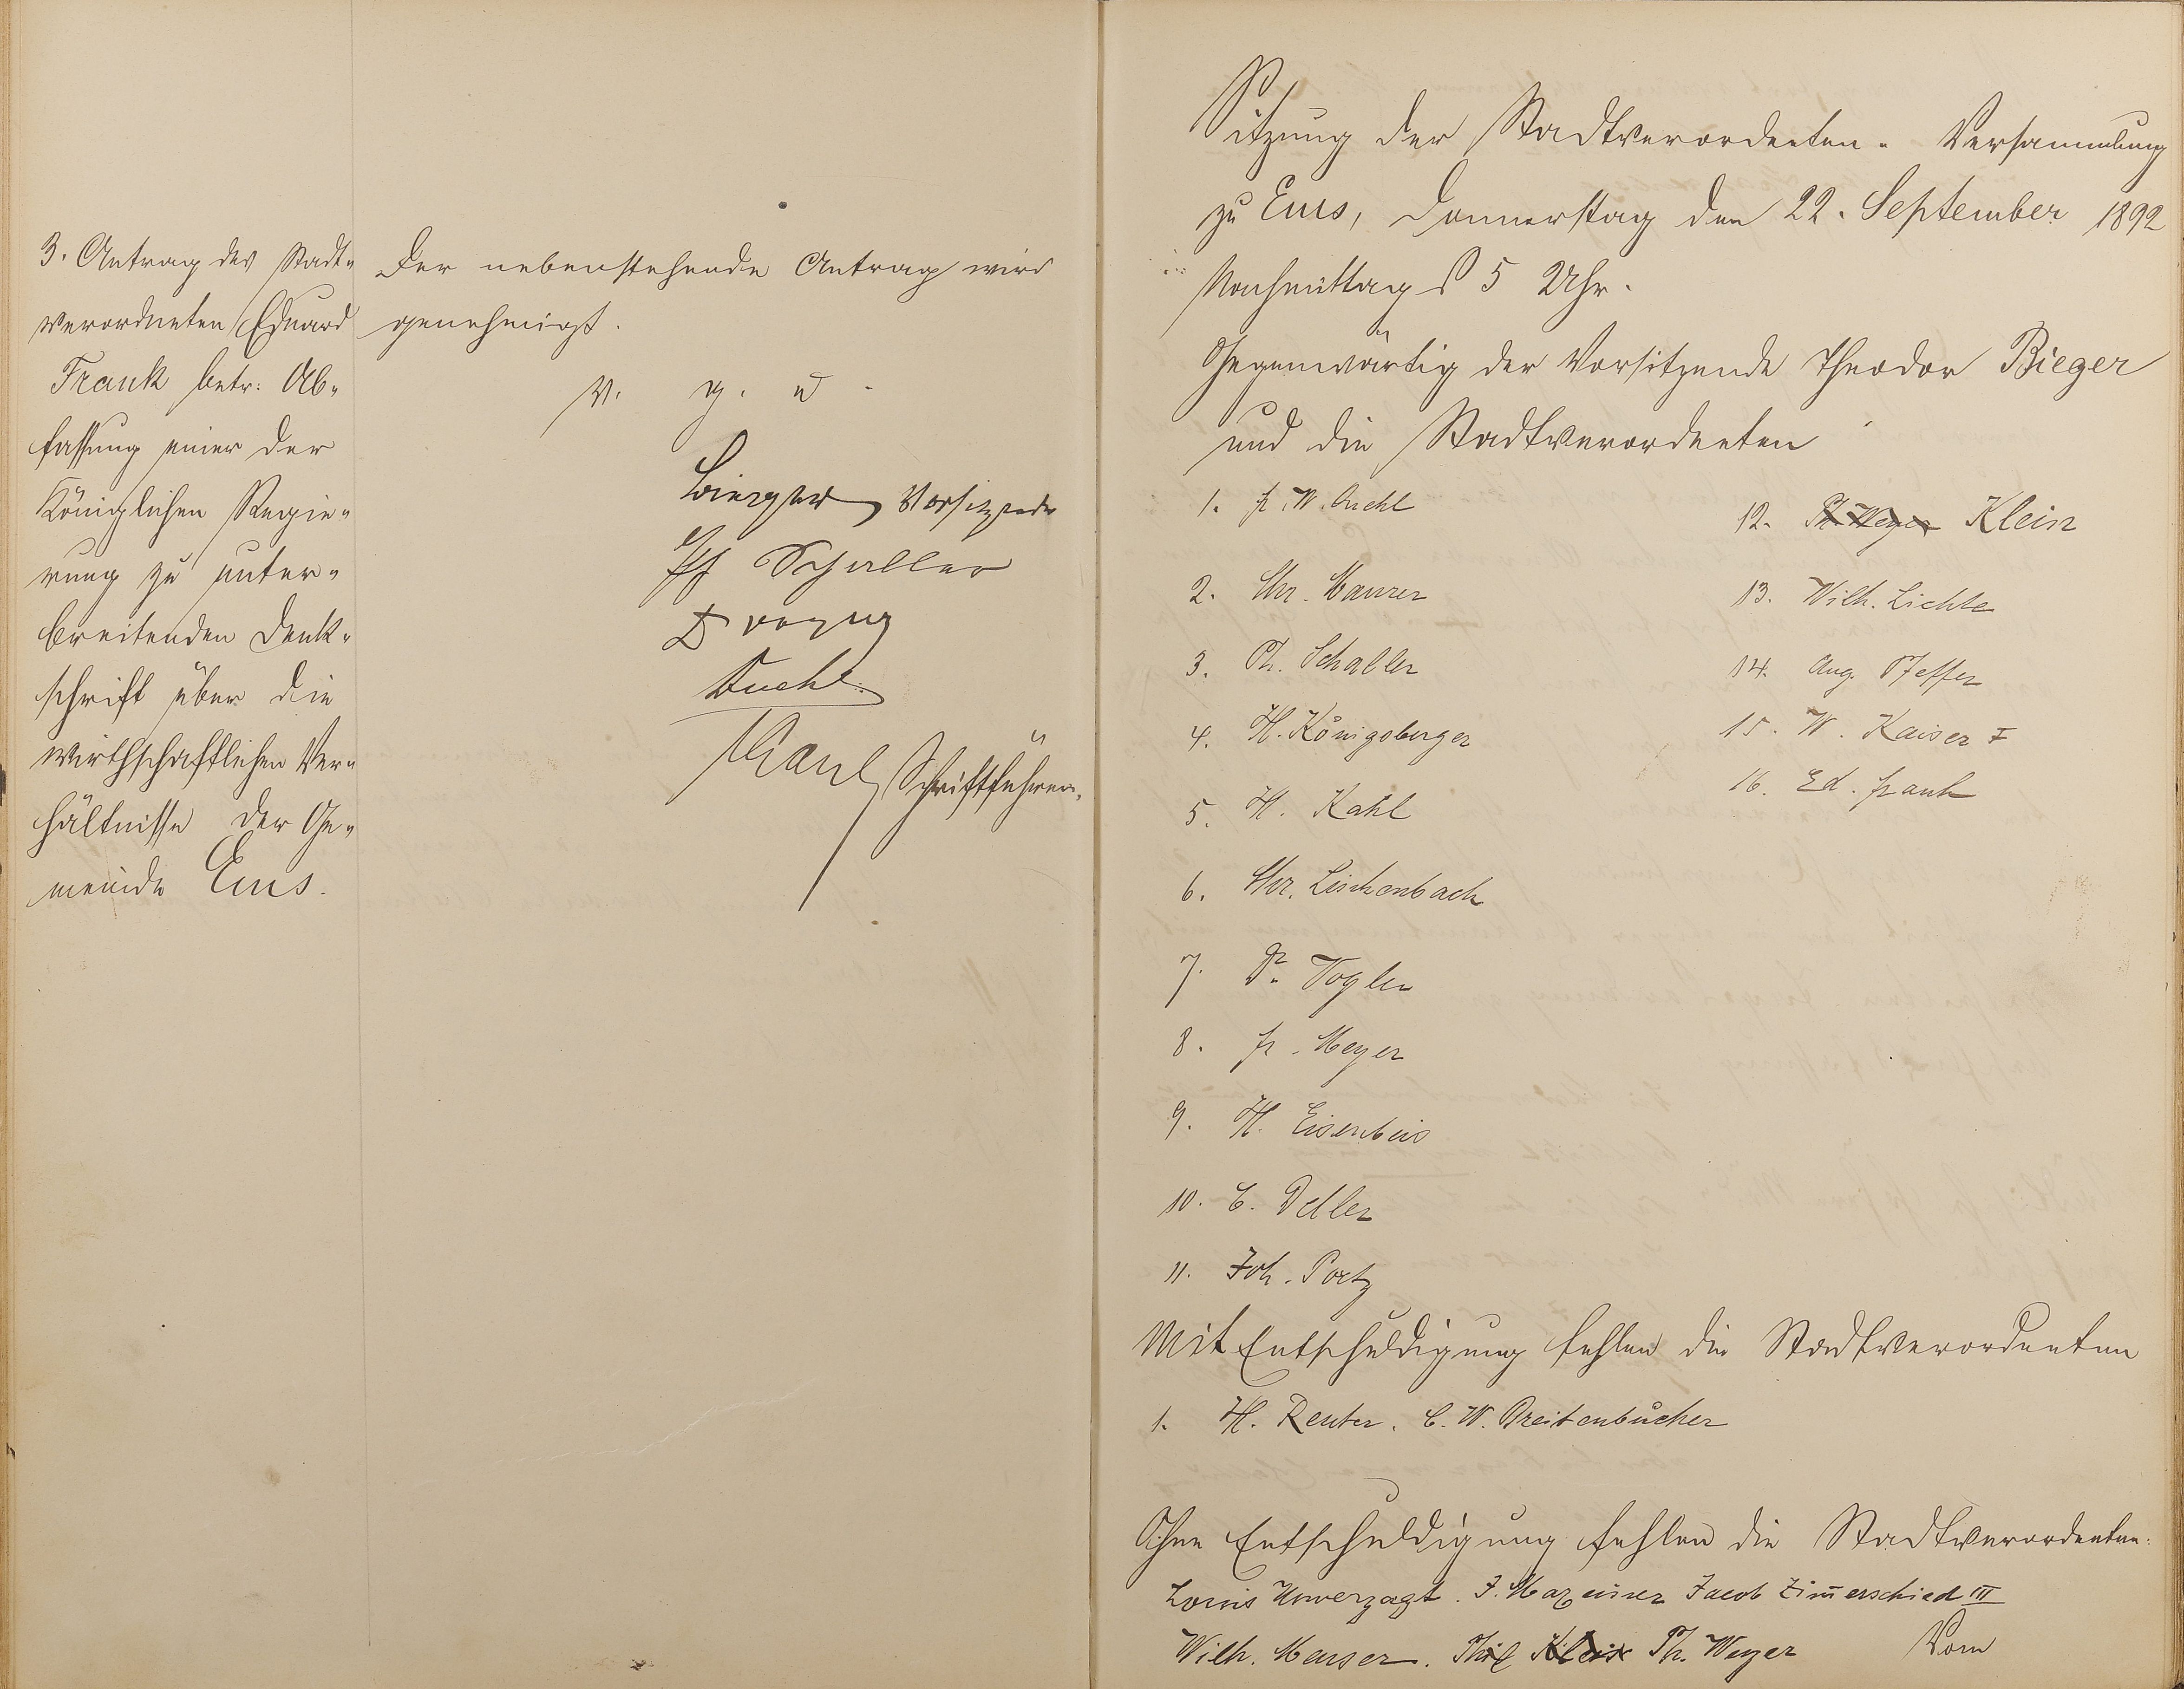 3. Antrag des Stadt-
verordneten Eduard
Frank betr: Ab-
fassung einer der
Königlichen Regie-
rung zu unter-
breitenden Denk-
schrift über die
wirthschaftlichen Ver-
hältnisse der Ge-
meinde Ems.
Der nebenstehende Antrag wird
genehmigt.
v. g. u.
Bieger, Vorsitzender
Ph Schaller
Kaul, Schriftführer.
Sitzung der Stadtverordneten-Versammlung
zu Ems, Donnerstag den 22. September 1892
Nachmittags 5 Uhr.
Gegenwärtig der Vorsitzende Theodor Bieger
und die Stadtverordneten
1. Fr. W.
2. Chr. Maurer
3. Ph. Schaller
4. H. Königsberger
5. H. Kahl
6. Chr. Linkenbach
7. Dr. Vogler
8. Fr. Meyer
9. H. Eisenbeis
10. C. Deller
11. Joh. Portz
12. Ph. Weyer Klein
13. Wilh. Lichte
14. Aug. Pfeffer
15. W. Kaiser I
16. Ed. Frank
Mit Entschuldigung fehlen die Stadtverordneten
1. H. Reuter. C. W. Breitenbücher
Ohne Entschuldigung fehlen die Stadtverordneten:
Louis Unverzagt. J. Jacob Zim̄erschied III
Wilh. Phil Klein Ph. Weyer Vom